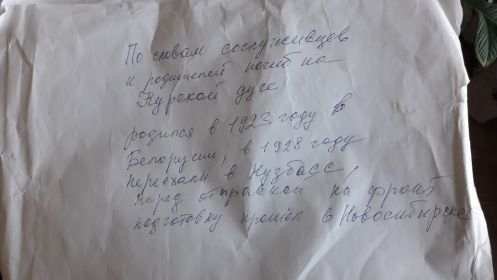 По словам сослуживцев
и родителей погиб на
Курской дуге
родился в 1923 году в
Белорусии, в 1928 году
переехали в Кузбасс,
перед отправкой на фронт
подготовку прошёл в Новосибирске